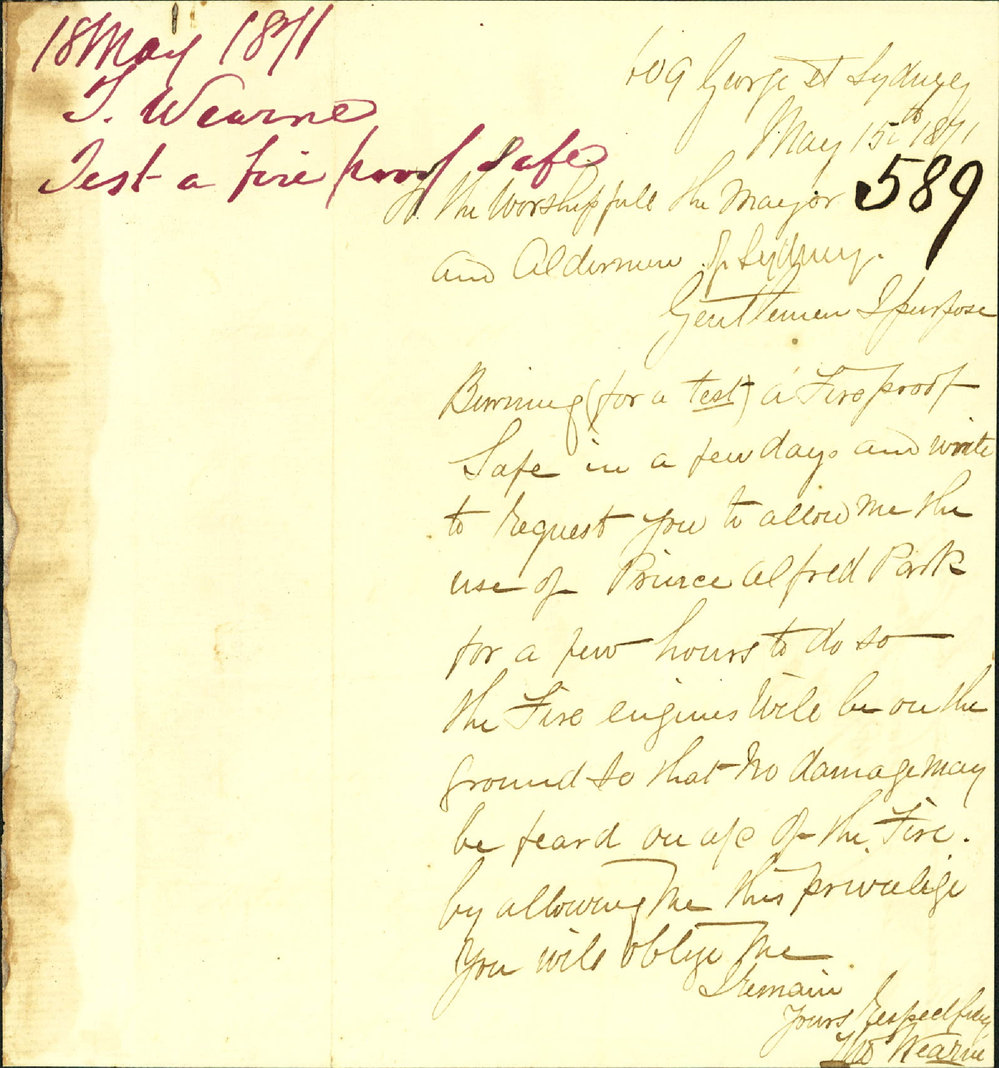 18 May 1871
T. Wearne
Test a fire proof Safe
609 George St Sydney
May 15th 1871
589
To the Worshipfull the Mayor
and Aldermen of Sydney.
Gentlemen I purpose
Burning (for a test) a Fireproof
Safe in a few days and write
to request you to allow me the
use of Prince Alfred Park
for a few hours to do so
the Fire engines Will be on the
ground so that No damage may
be feard on a/c of the Fire.
by allowing Me this privelige
You will oblige Me
I Remain
Yours Respectfully
Tho Wearne